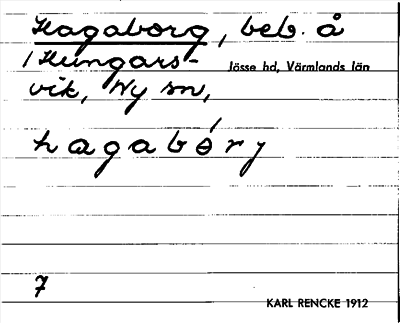 Hagaborg, beb. å
/ Hungars-
Jösse hd, Värmlands län
vik, Ny sn,
hagabórj
7
KARL RENCKE 1912